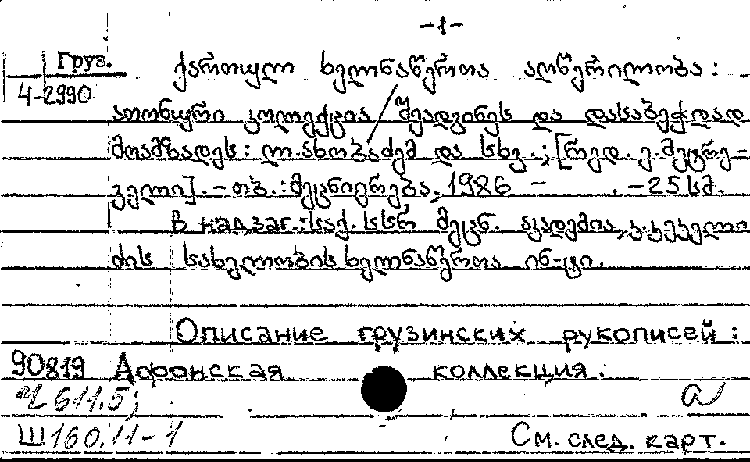 -1-
Груз. ქართულ ხელნაწერთა აღწერილობა :
4-2990
ათონური კოლექცია / შეადგინეს და დასაბეჭდად
მოამზადეს: ლ. ახობაძემ და სხვ. ; [რედ. ე. მეტრე-
ველი]. - თბ. : მეცნიერება, 1986 - . - 25 სმ.
В надзаг.: საქ. სსრ მეცნ. აკადემია, კ. კეკელი
ძის სახელობის ხელნაწერთა ინ-ტი.
Описание грузинских рукописей :
90819 Афонская коллекция.
Ч611.5;
a
Ш160.11-1 См. след. карт.